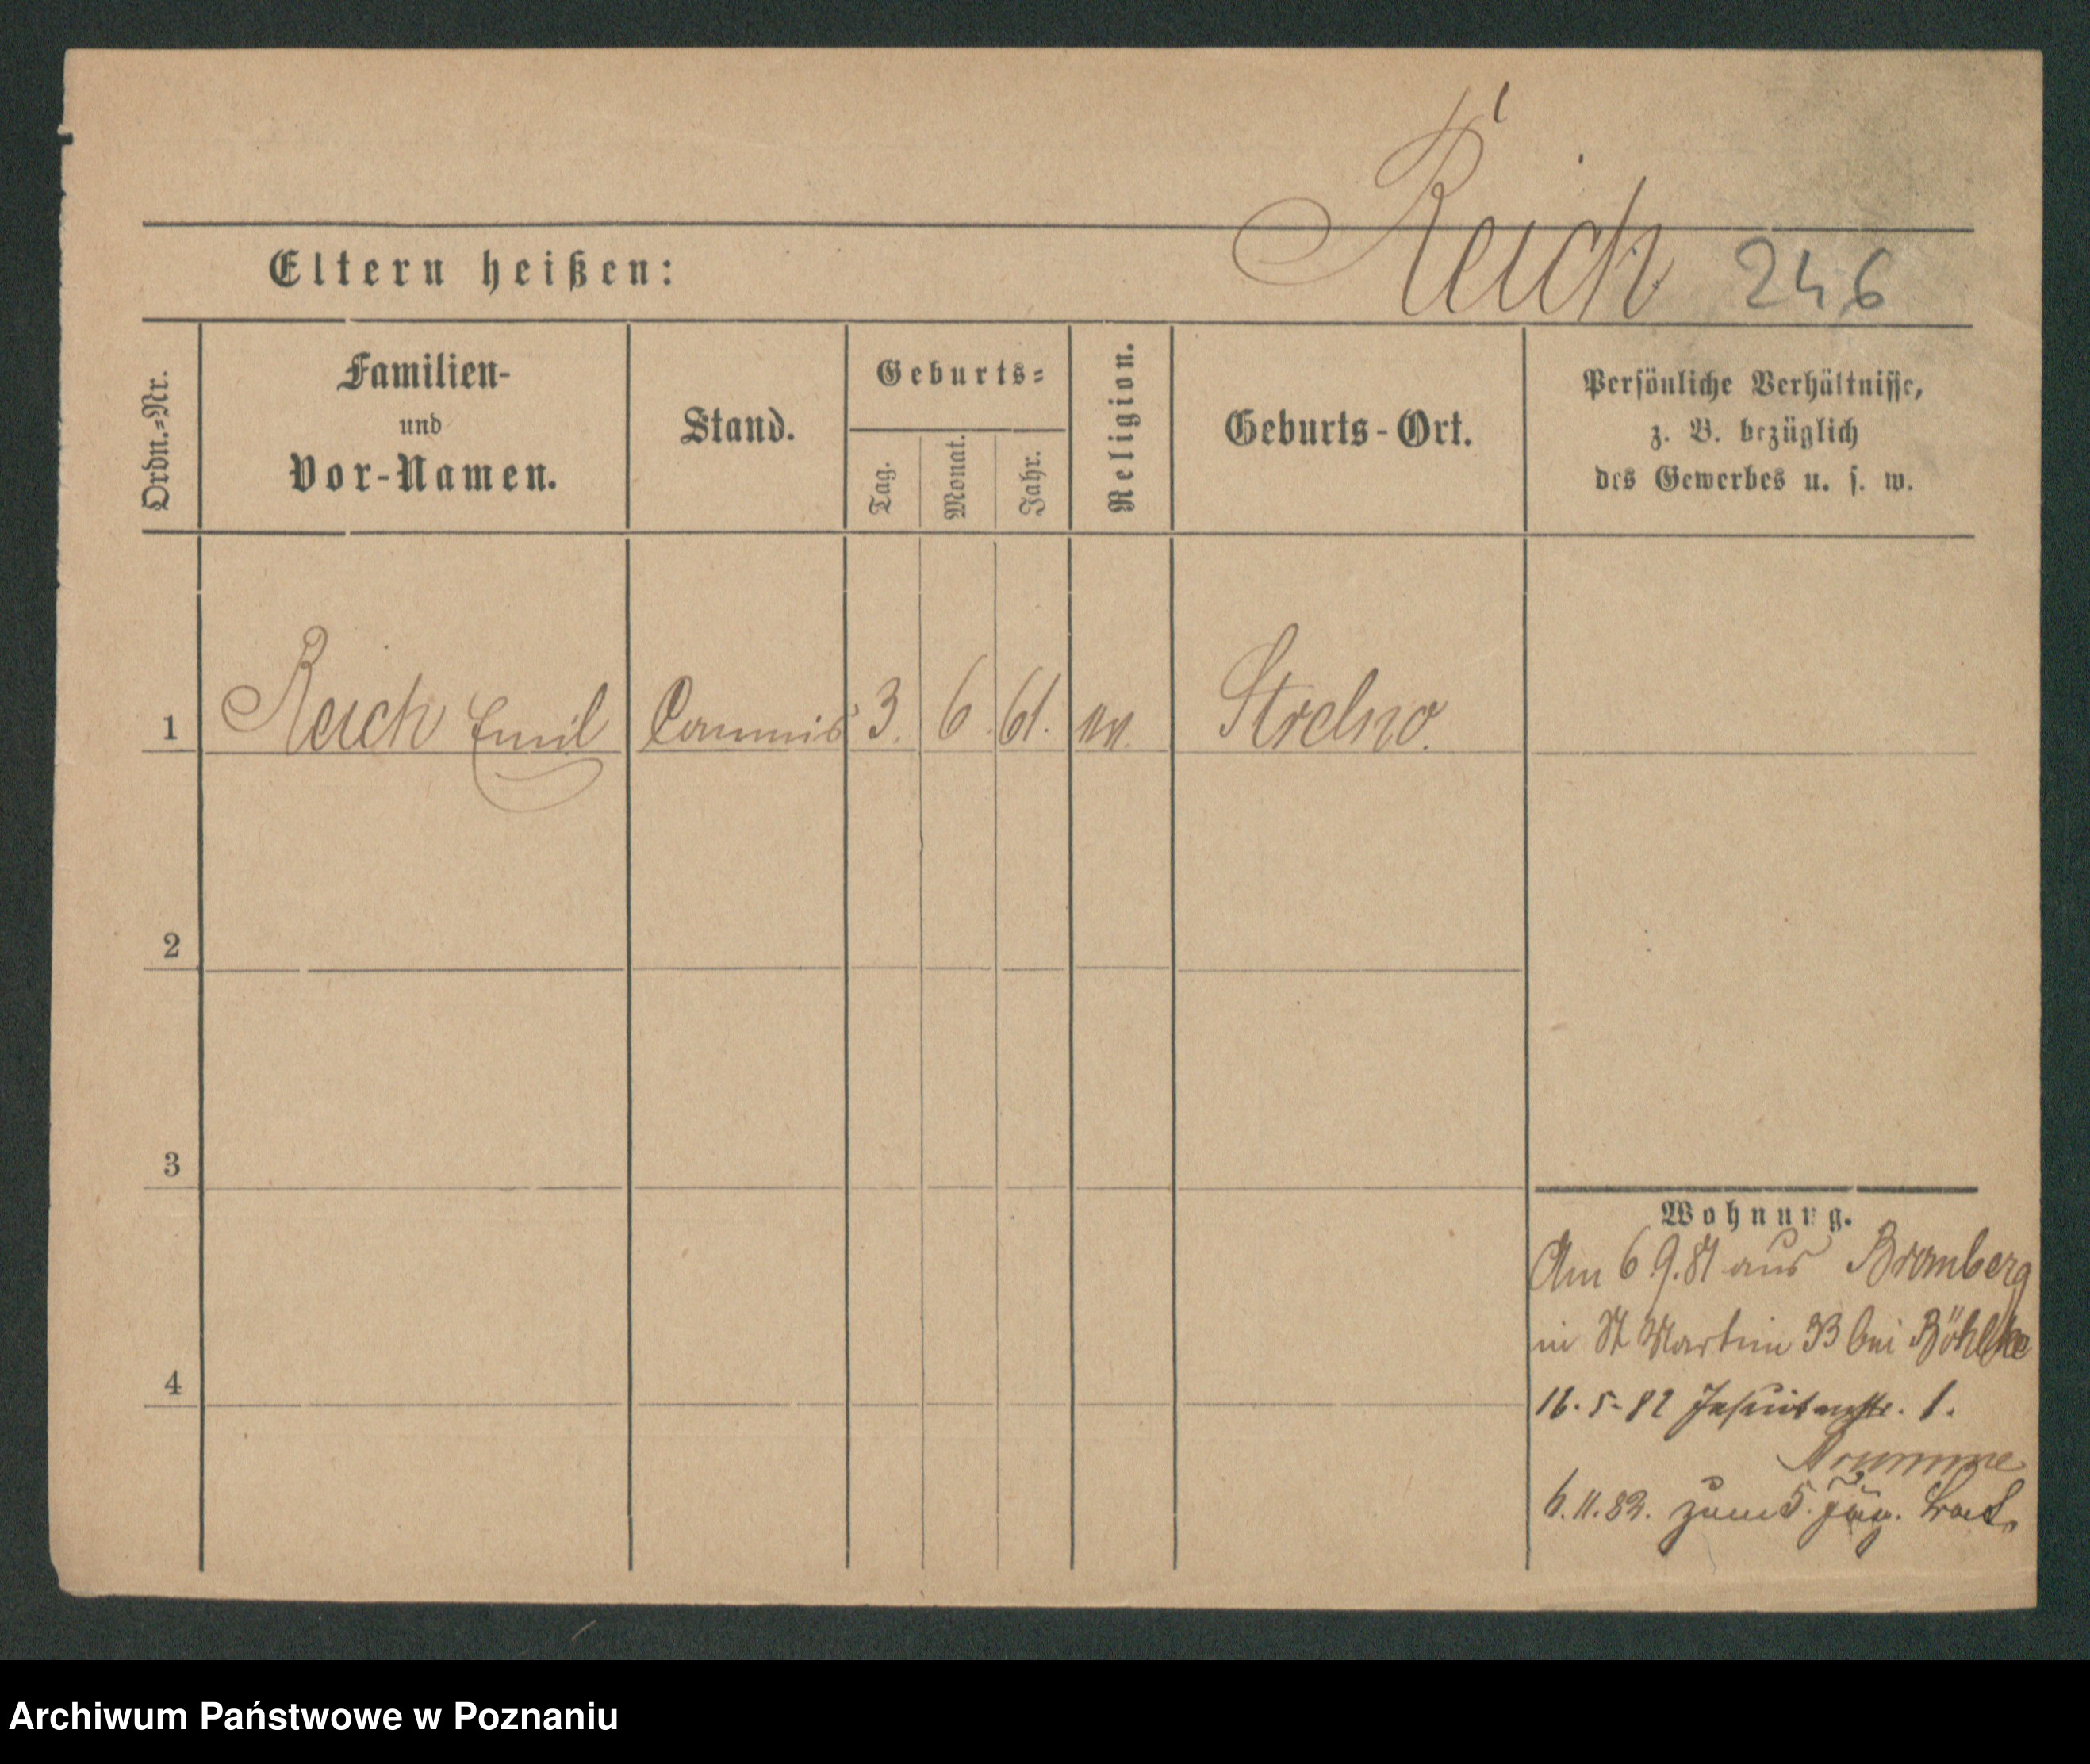 Reich 246
Eltern heißen:
Ordn.-Nr.
Familien-
und
Vor-Namen.
Stand.
Geburts-
Tag.
Monat.
Jahr.
Religion.
Geburts-Ort.
Persönliche Verhältnisse,
z. B. bezüglich
des Gewerbes u. s. w.
1 Reich Emil Commis 3. 6. 61. Strelno.
2
3
4
Wohnung.
Am 6.9.81 aus Bromberg
in St Martin 33 bei Böhlke
16.5.82 Jesuitenstr. 1.
Krumme
6.11.82. zum 5. Jäg.
Archiwum Państwowe w Poznaniu